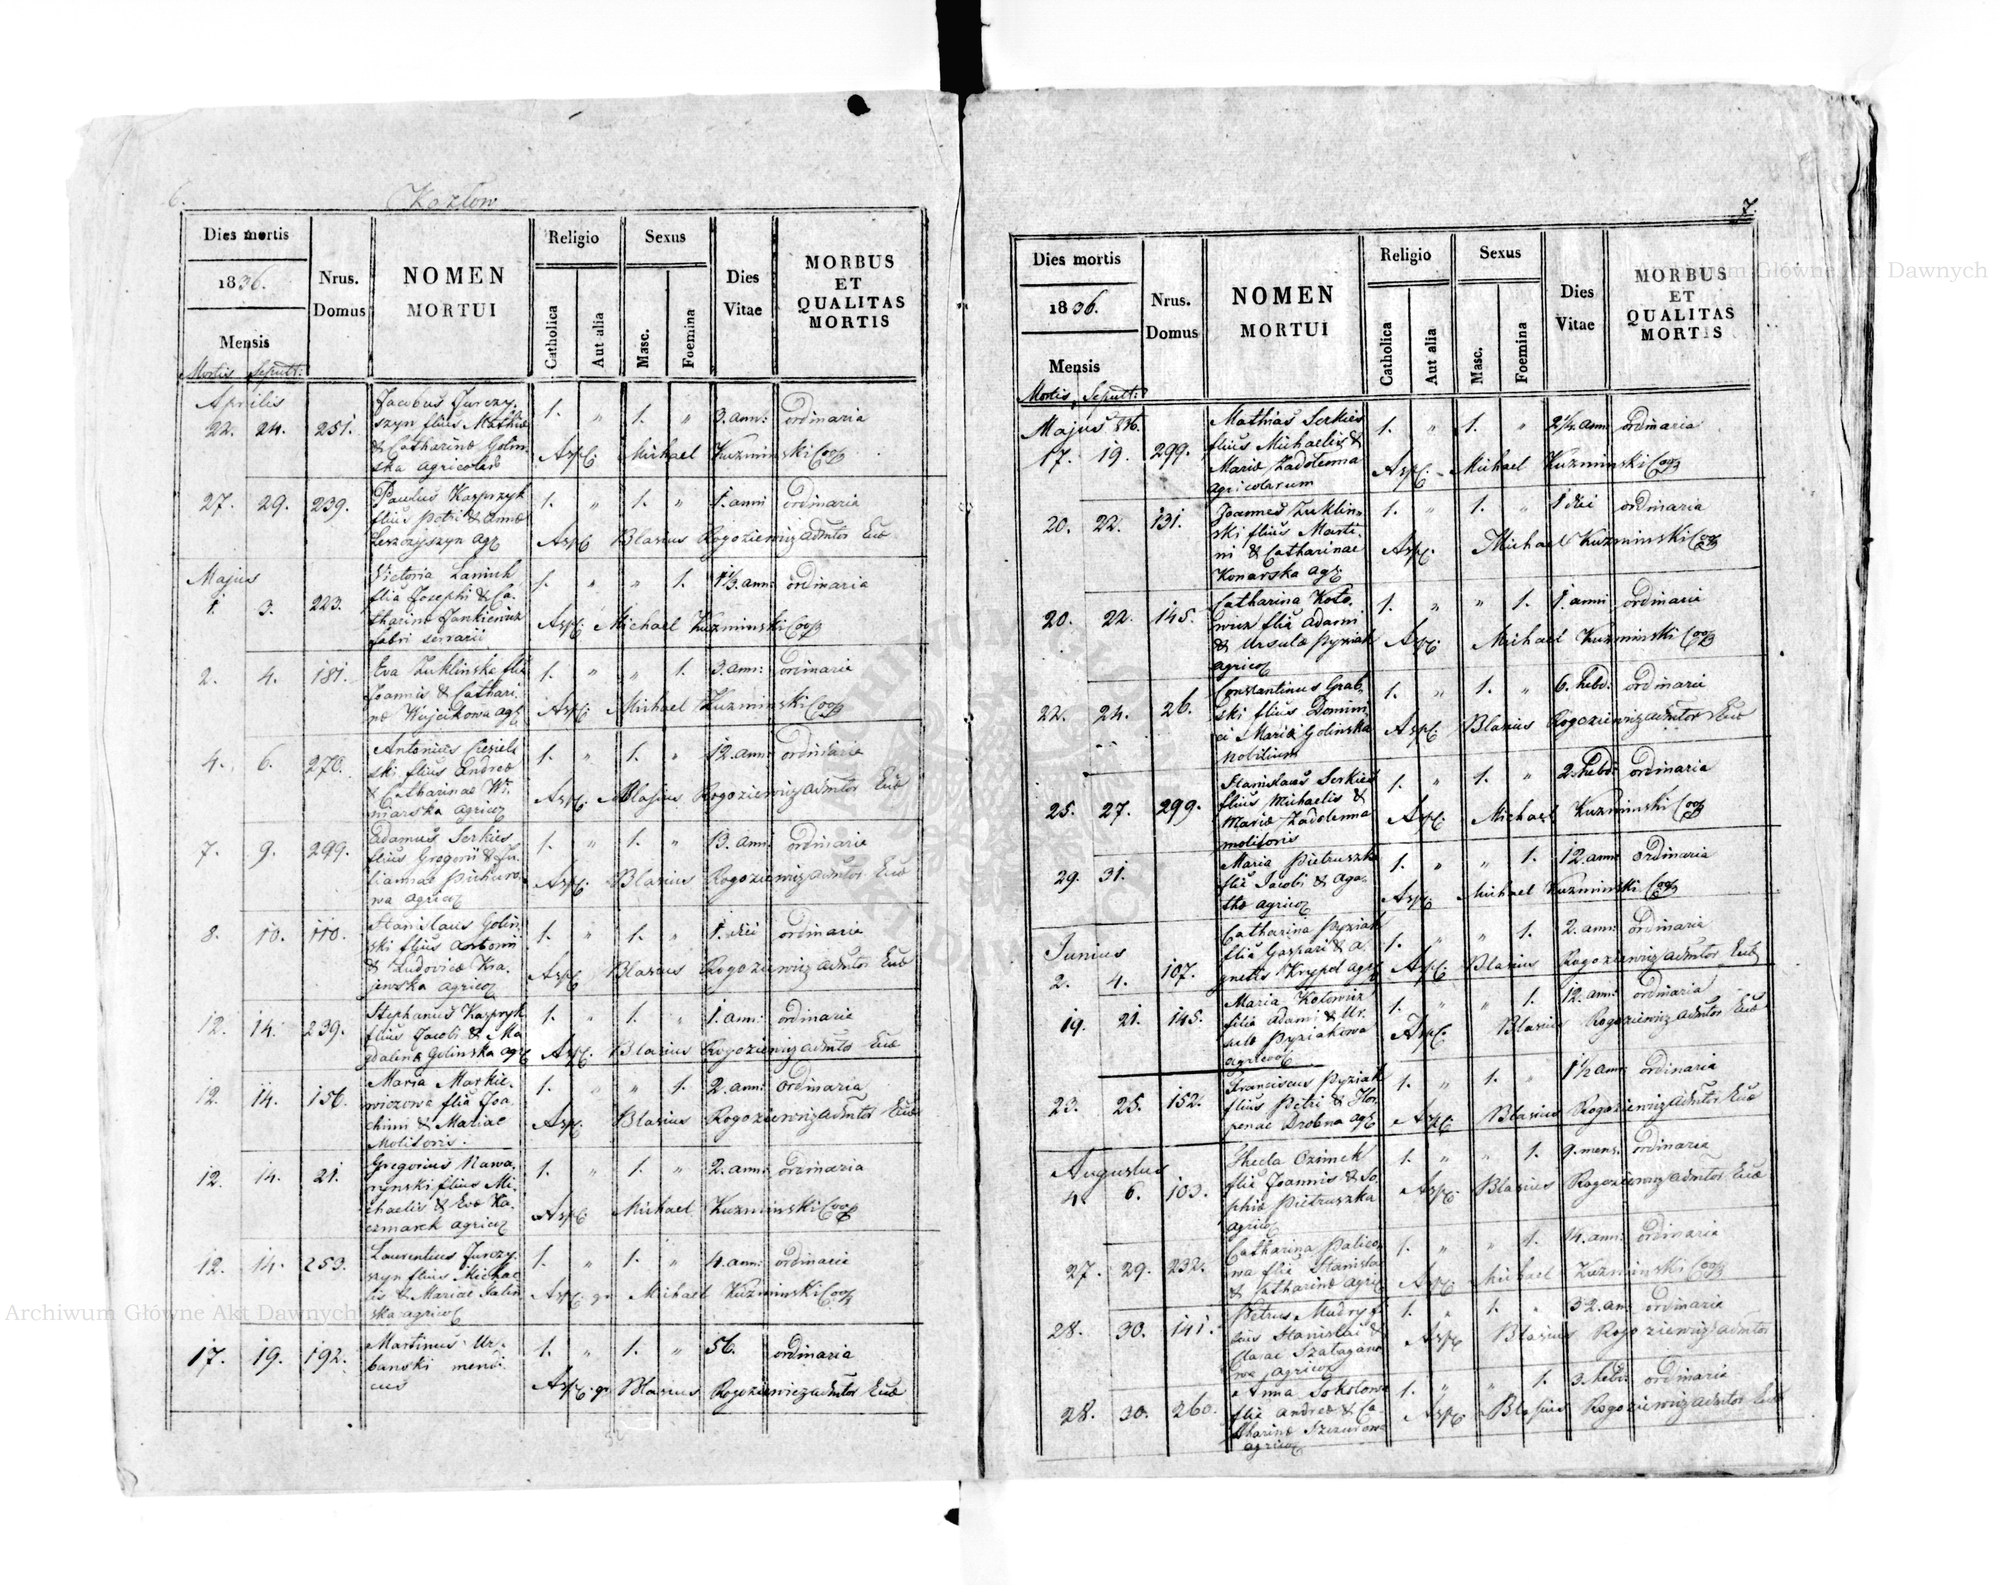 6.
Kozlow
Dies mortis
1836.
Mensis
Mortis Sepult:
Nrus.
Domus
NOMEN
MORTUI
Religio
Catholica
Aut alia
Sexus
Masc.
Foemina
Dies
Vitae
MORBUS
ET
QUALITAS
MORTIS
Aprilis
22. 24. 251.
Jacobus Jurczy-
szyn filius Mathiae
& Catharinae Golin-
ska agricolae
1. " 1. " 3. ann: ordinaria
Michael Kuzminski Coop
27. 29. 239.
Paulus Kasprzyk
filius Petri & Annae
Leszczyszyn
1. " 1. " 1. anni ordinaria
Blasius Rogoziewicz
Majus
1. 3. 223.
Victoria Lanich
filia Josephi & Ca-
tharinae Jankiewicz
fabri serrarii
1. " " 1. 1 1/3. ann: ordinaria
Michael Kuzminski Coop
2. 4. 181.
Eva Zuklinska filia
Joannis & Cathari-
nae Wujcikowa
1. " " 1. 3. ann: ordinaria
Michael Kuzminski Coop
4. 6. 270.
Antonius Ciesiel-
ski filius Andreae
& Catharinae Wi-
niarska
1. " 1. " 12. ann: ordinaria
Blasius Rogoziewicz
7. 9. 299.
Adamus Serkies
filius Gregorii & Ju-
liannae Pichuro-
wa
1. " 1. " 13. ann: ordinaria
Blasius Rogoziewicz
8. 10. 110.
Stanislaus Golin-
ski filius Antonii
& Ludovicae Kra-
jewska
1. " 1. " 1. diei ordinaria
Blasius Rogoziewicz
12. 14. 239.
Stephanus Kasprzyk
filius Jacobi & Ma-
gdalenae Golinska
1. " 1. " 1. ann: ordinaria
Blasius Rogoziewicz
12. 14. 156.
Maria Markie-
wiczowa filia Joa-
chimi & Mariae
Molitoris.
1. " " 1. 2. ann: ordinaria
Blasius Rogoziewicz
12. 14. 21.
Gregorius Nawa-
rynski filius Mi-
chaelis & Evae Ka-
czmarek
1. " 1. " 2. ann: ordinaria
Michael Kuzminski Coop
12. 14. 253.
Laurentius Jurczy-
szyn filius Michae-
lis & Mariae
1. " 1. " 4. ann: ordinaria
Michael Kuzminski Coop
17. 19. 192.
Martinus Ur-
banski mendi-
cus
1. " 1. " 56. ordinaria
Blasius Rogoziewicz
52
7.
Dies mortis
1836.
Mensis
Mortis Sepult:
Nrus.
Domus
NOMEN
MORTUI
Religio
Catholica
Aut alia
Sexus
Masc.
Foemina
Dies
Vitae
MORBUS
ET
QUALITAS
MORTIS
Majus 836.
17. 19. 299.
Mathias Serkies
filius Michaelis &
Mariae Zadolenna
agricolarum
1. " 1. " 2 1/2. ann: ordinaria
Michael Kuzminski Coop
20. 22. 131.
Joannes Zuklin-
ski filius Marti-
ni & Catharinae
Konarska
1. " 1. " 1 diei ordinaria
Michael Kuzminski Coop
20. 22. 145.
Catharina Koto-
wicz filia Adami
& Ursulae Pyziak
1. " " 1. 1. anni ordinaria
Michael Kuzminski Coop
22. 24. 26.
Constantinus Grab-
ski filius Domini-
ci Mariae Golinska
nobilium
1. " 1. " 6. hebd: ordinaria
Blasius Rogoziewicz
25. 27. 299.
Stanislaus Serkies
filius Michaelis &
Mariae Zadolenna
molitoris
1. " 1. " 2. hebd: ordinaria
Michael Kuzminski Coop
29. 31.
Maria Pietruszka
filia Jacobi & Aga-
thae
1. " " 1. 12. ann: ordinaria
Michael Kuzminski Coop
Junius
2. 4. 107.
Catharina Pyziak
filia Gaspari & A-
gnetis Krypel
1. " " 1. 2. ann: ordinaria
Blasius Rogoziewicz
19. 21. 145.
Maria Kotowicz
filia Adami & Ur-
sulae Pyziakowa
1. " " 1. 12. ann: ordinaria
Blasius Rogoziewicz
23. 25. 152.
Franciscus Pyziak
filius Petri &
Drobna
1. " 1. " 1 1/2 ann: ordinaria
Blasius Rogoziewicz
Augustus
4. 6. 103.
Thecla Ozimek
filia Joannis & So-
phiae Pietruszka
1. " " 1. 9. mens: ordinaria
Blasius Rogoziewicz
27. 29. 232.
Catharina
filia Stanislai
& Catharinae
1. " " 1. 14. ann: ordinaria
Michael Kuzminski Coop
28. 30. 141.
Petrus Mudry fi-
lius Stanislai &
Clarae
1. " 1. " 32. ann: ordinaria
Blasius Rogoziewicz
28. 30. 260.
Anna Sokolowa
filia Andreae & Ca-
tharinae
1. " " 1. 3. hebd: ordinaria
Blasius Rogoziewicz
Archiwum Główne Akt Dawnych
Archiwum Główne Akt Dawnych